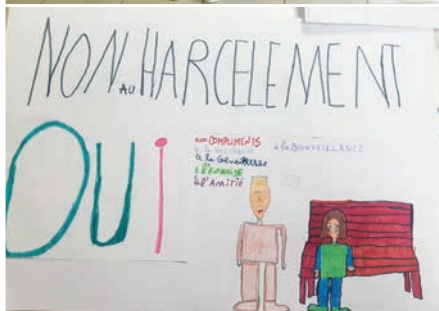 NON AU HARCELEMENT
OUI
aux COMPLIMENTS
à la
à la Gentillesse
à l'Entraide
à l'AMITIÉ
à la BIENVEILLANCE